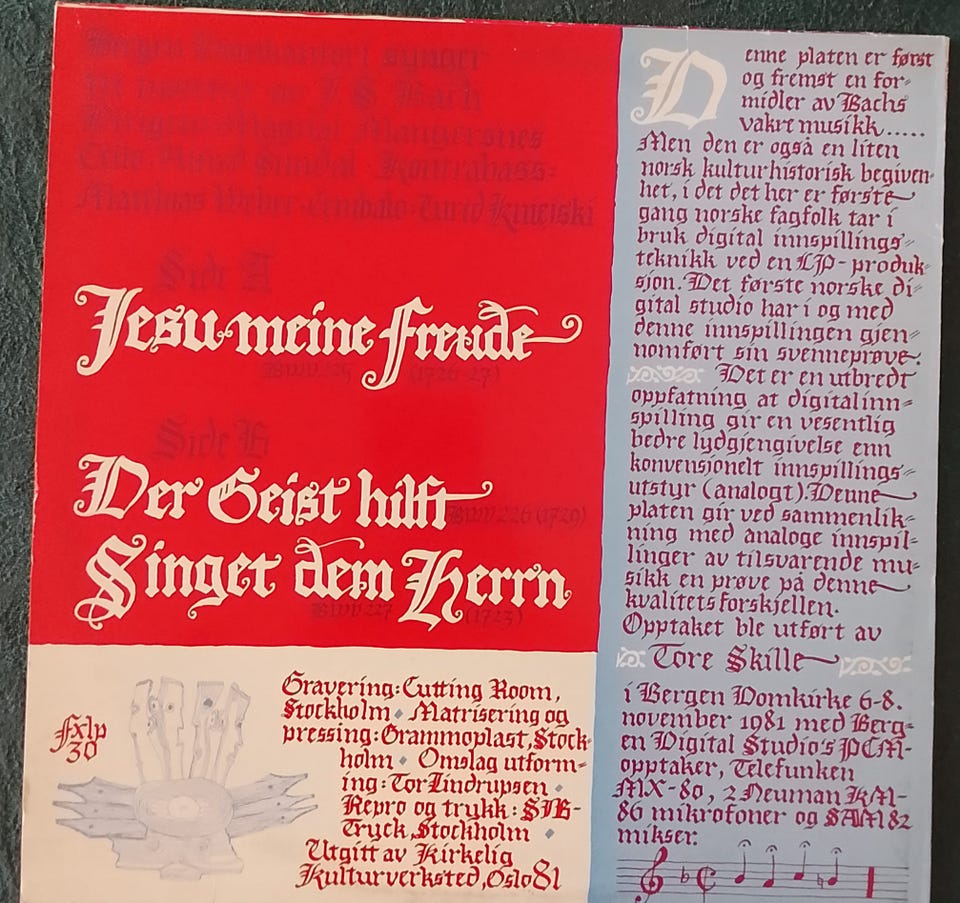 Bergen Domkantori synger
motetter av J S Bach
Magnar Mangersnes
Cello: Kontrabass:
Matthias Weber Cembalo: Turid Kniejski
Side A
Jesu meine Freude
BWV 225 (1726-27)
Side B
Der Geist hilft
BWV 226 (1729)
Singet dem Herrn
BWV 227 (1723)
Fxlp
30
Gravering: Cutting Room,
Stockholm ⬥ Matrisering og
pressing: Grammoplast, Stock-
holm ⬥ Omslag utform-
ing: Tor Lindrupsen ⬥
Repro og trykk: SIB-
Tryck, Stockholm ⬥
Utgitt av Kirkelig
Kulturverksted, Oslo 81
Denne platen er først
og fremst en for-
midler av Bachs
vakre musikk.....
Men den er også en liten
norsk kulturhistorisk begiven-
het, i det det her er første
gang norske fagfolk tar i
bruk digital innspillings-
teknikk ved en LP-produk-
sjon. Det første norske di-
gital studio har i og med
denne innspillingen gjen-
nomført sin svenneprøve.
Det er en utbredt
oppfatning at digital inn-
spilling gir en vesentlig
bedre lydgjengivelse enn
konvensjonelt innspillings-
utstyr (analogt). Denne
platen gir ved sammenlik-
ning med analoge innspil-
linger av tilsvarende mu-
sikk en prøve på denne
kvalitetsforskjellen.
Opptaket ble utført av
Tore Skille
i Bergen Domkirke 6-8.
november 1981 med Berg-
en Digital Studio's PCM-
opptaker, Telefunken
MX-80, 2 Neuman KM-
86 mikrofoner og SAM 82
mikser.